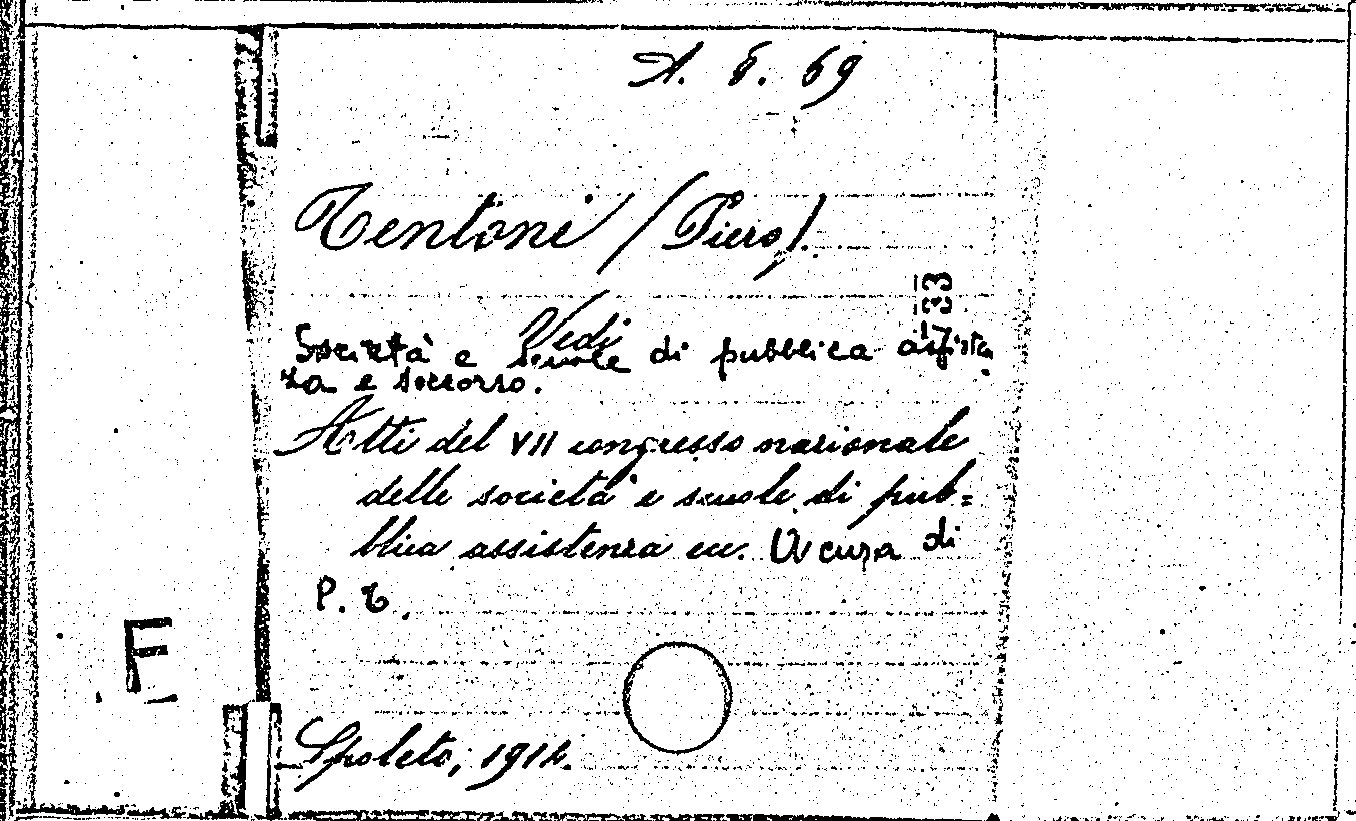 A. 8. 69
Tentoni (Piero).
Vedi
Società e scuole di pubblica assisten
za e soccorso.
Atti del VII congresso nazionale
delle società e scuole di pub=
blica assistenza ecc. A cura di
P. T.
E
Spoleto, 1914.